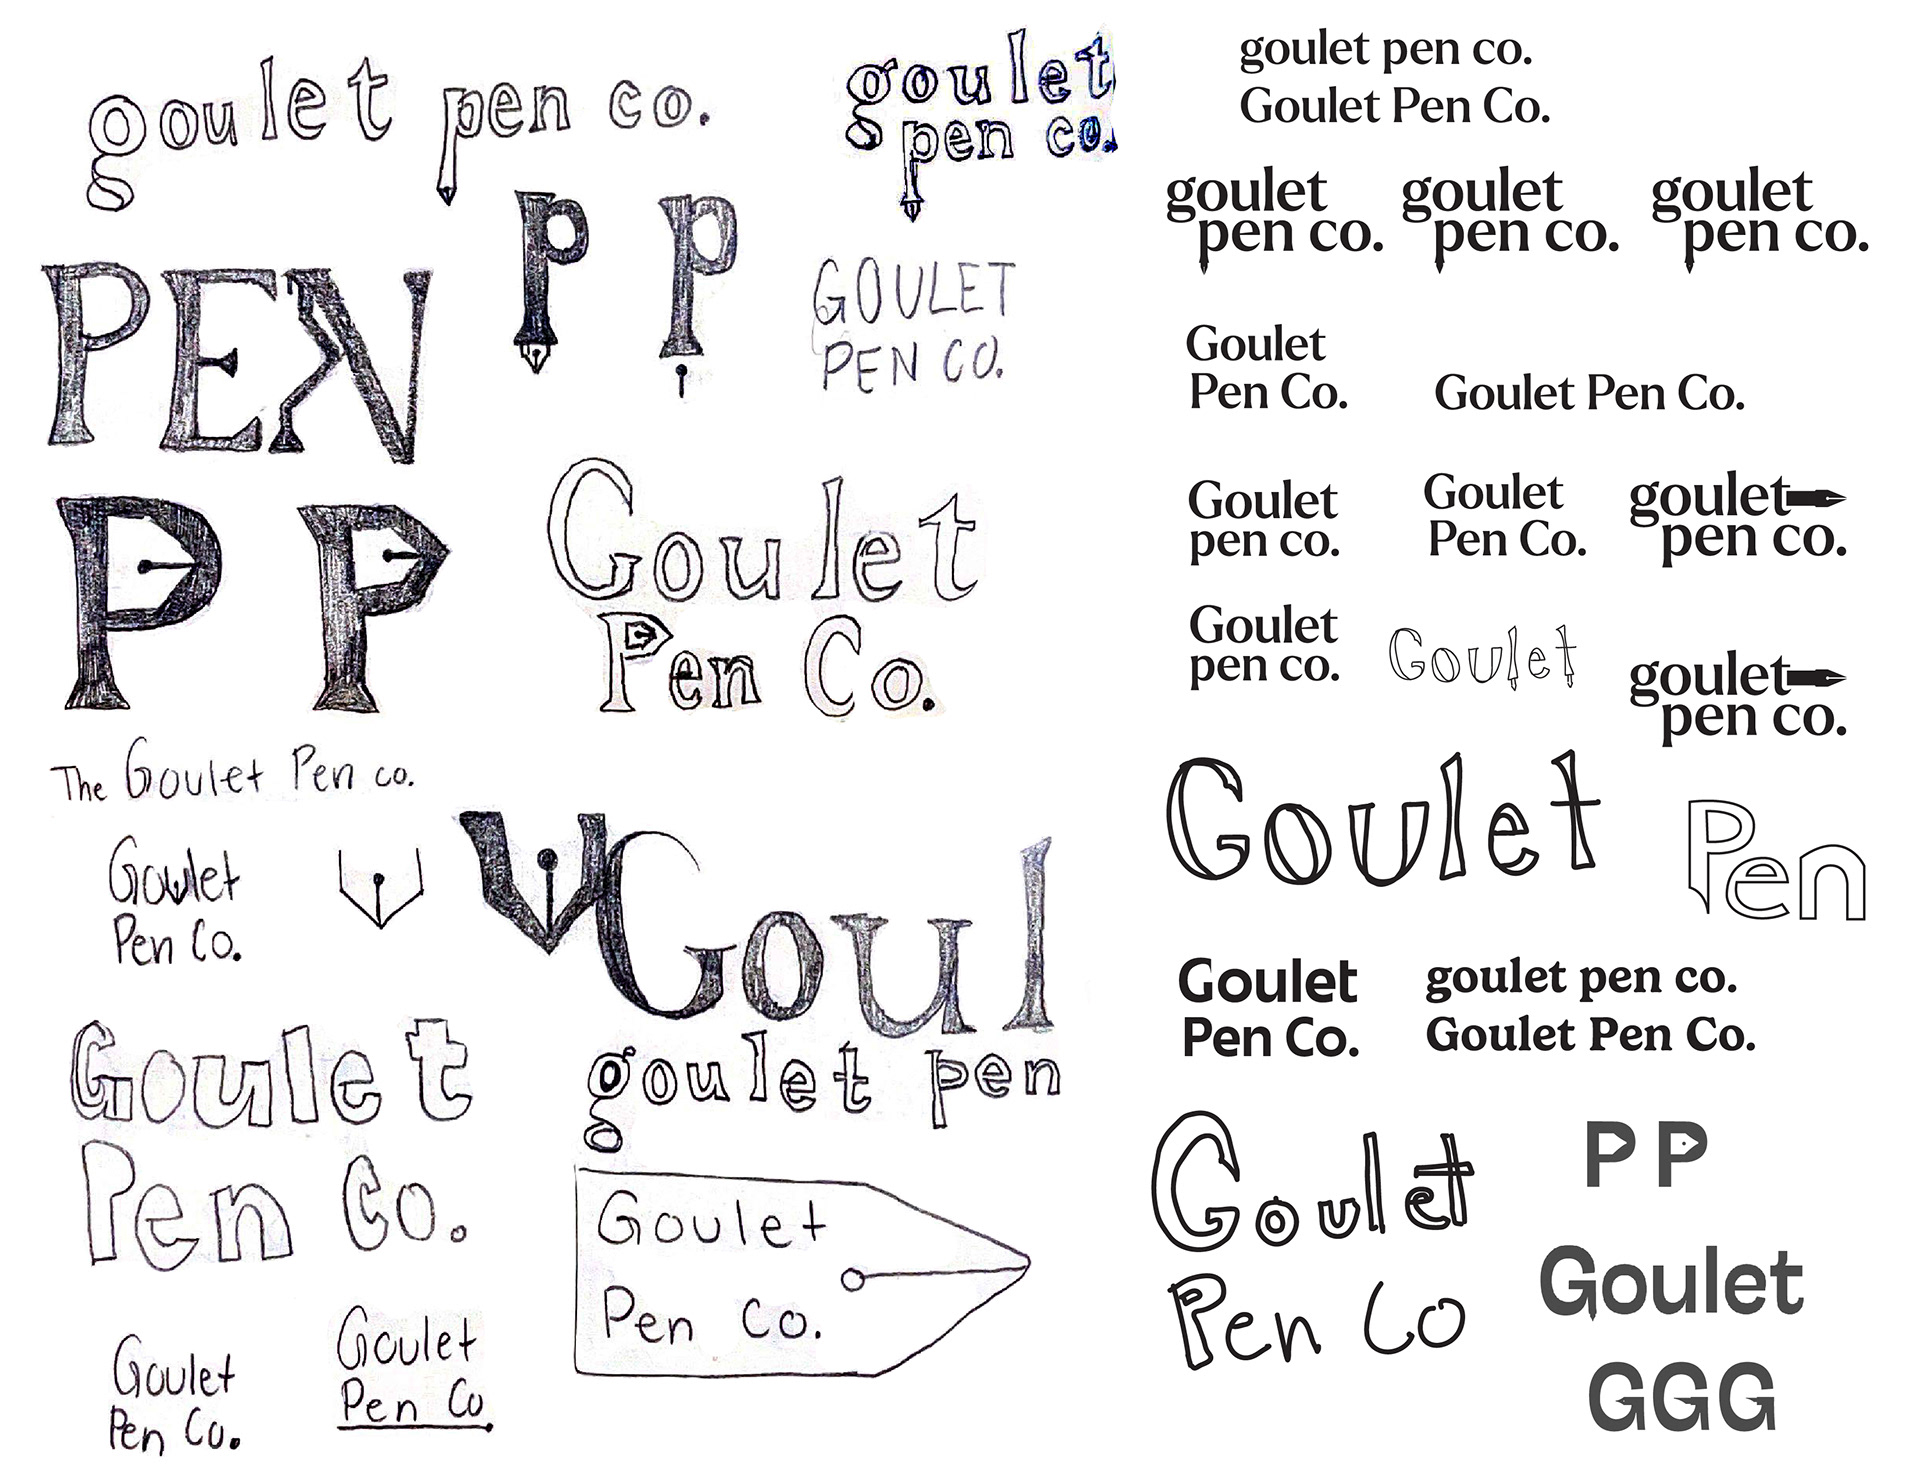 goulet pen co.
goulet
pen co.
P P
PEN
GOULET
PEN CO.
P P
Goulet
Pen Co.
The Goulet Pen co.
Goulet
Pen Co.
Goul
goulet pen
Goulet
Pen Co.
Goulet
Pen Co.
Goulet
Pen Co.
Goulet
Pen Co
goulet pen co.
Goulet Pen Co.
goulet
pen co.
goulet
pen co.
goulet
pen co.
Goulet
Pen Co.
Goulet Pen Co.
Goulet
pen co.
Goulet
Pen Co.
goulet
pen co.
Goulet
pen co.
Goulet
goulet
pen co.
Goulet
Pen
Goulet
Pen Co.
goulet pen co.
Goulet Pen Co.
Goulet
Pen Co
P P
Goulet
GGG